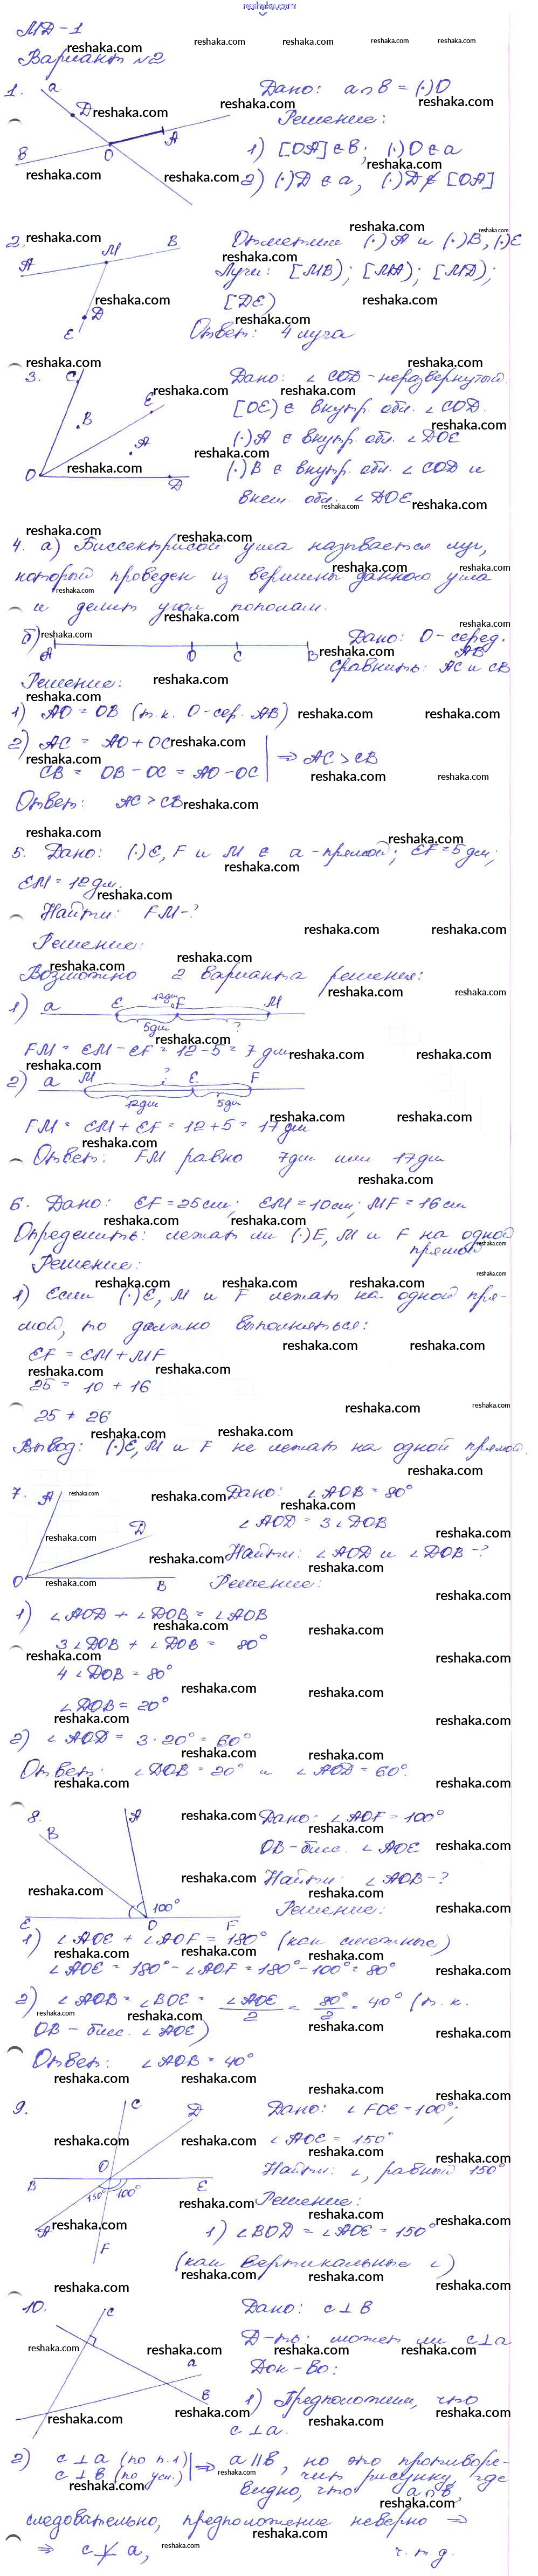 reshaka.com
МД-1
Вариант №2
1.
Дано: a∩B = (·)O
Решение:
1) [OA] ∈ B; (·)O ∈ a
2) (·)D ∈ a, (·)D ∉ [OA]
a
D
A
B
O
2.
Отметим (·)A и (·)B, (·)E
Лучи: [MB); [MA); [MD);
[DE)
Ответ: 4 луча
A
M
B
D
E
3.
Дано: ∠COD - неразвернутый
[OE) ∈ внутр. обл. ∠COD.
(·)A ∈ внутр. обл. ∠DOE
(·)B ∈ внутр. обл. ∠COD и
внеш. обл. ∠DOE
C
E
B
A
O
D
4. а) Биссектрисой угла называется луч,
который проведен из вершины данного угла
и делит угол пополам.
б)
A O C B
Дано: O - серед.
AB
Сравнить: AC и CB
Решение:
1) AO = OB (т.к. O-сер. AB)
2) AC = AO + OC
CB = OB - OC = AO - OC
⇒ AC > CB
Ответ: AC > CB
5. Дано: (·)E, F и M ∈ a - прямой; EF = 5 дм;
EM = 12 дм.
Найти: FM-?
Решение:
Возможно 2 варианта решения:
1) a E 12дм F M
5дм ?
FM = EM - EF = 12 - 5 = 7 дм
2) a M ? E F
12дм 5дм
FM = EM + EF = 12 + 5 = 17 дм
Ответ: FM равно 7дм или 17дм
6. Дано: EF = 25 см; EM = 10 см; MF = 16 см
Определить: лежат ли (·)E, M и F на одной
прямой
Решение:
1) Если (·)E, M и F лежат на одной пря-
мой, то должно выполняться:
EF = EM + MF
25 = 10 + 16
25 ≠ 26
Вывод: (·)E, M и F не лежат на одной прямой.
7.
A
D
O
B
Дано: ∠AOB = 80°
∠AOD = 3∠DOB
Найти: ∠AOD и ∠DOB-?
Решение:
1) ∠AOD + ∠DOB = ∠AOB
3∠DOB + ∠DOB = 80°
4∠DOB = 80°
∠DOB = 20°
2) ∠AOD = 3·20° = 60°
Ответ: ∠DOB = 20° и ∠AOD = 60°.
8.
B
A
100°
E O F
Дано: ∠AOF = 100°
OB - бисс. ∠AOE
Найти: ∠AOB-?
Решение:
1) ∠AOE + ∠AOF = 180° (как смежные)
∠AOE = 180° - ∠AOF = 180° - 100° = 80°
2) ∠AOB = ∠BOE = ∠AOE/2 = 80°/2 = 40° (т.к.
OB - бисс. ∠AOE)
Ответ: ∠AOB = 40°
9.
C
D
O
B
E
150° 100°
A
F
Дано: ∠FOE = 100°;
∠AOE = 150°
Найти: ∠, равный 150°
Решение:
1) ∠BOD = ∠AOE = 150°
(как вертикальные ∠)
10.
c
a
B
Дано: c ⊥ B
Д-ть: может ли c⊥a
Док-во:
1) Предположим, что
c ⊥ a.
2) c ⊥ a (по п.1)
c ⊥ B (по усл.)
⇒ a ∥ B, но это противоре-
чит рисунку, где
видно, что a∩B,
следовательно, предположение неверно ⇒
⇒ c ⊥̸ a,
ч.т.д.